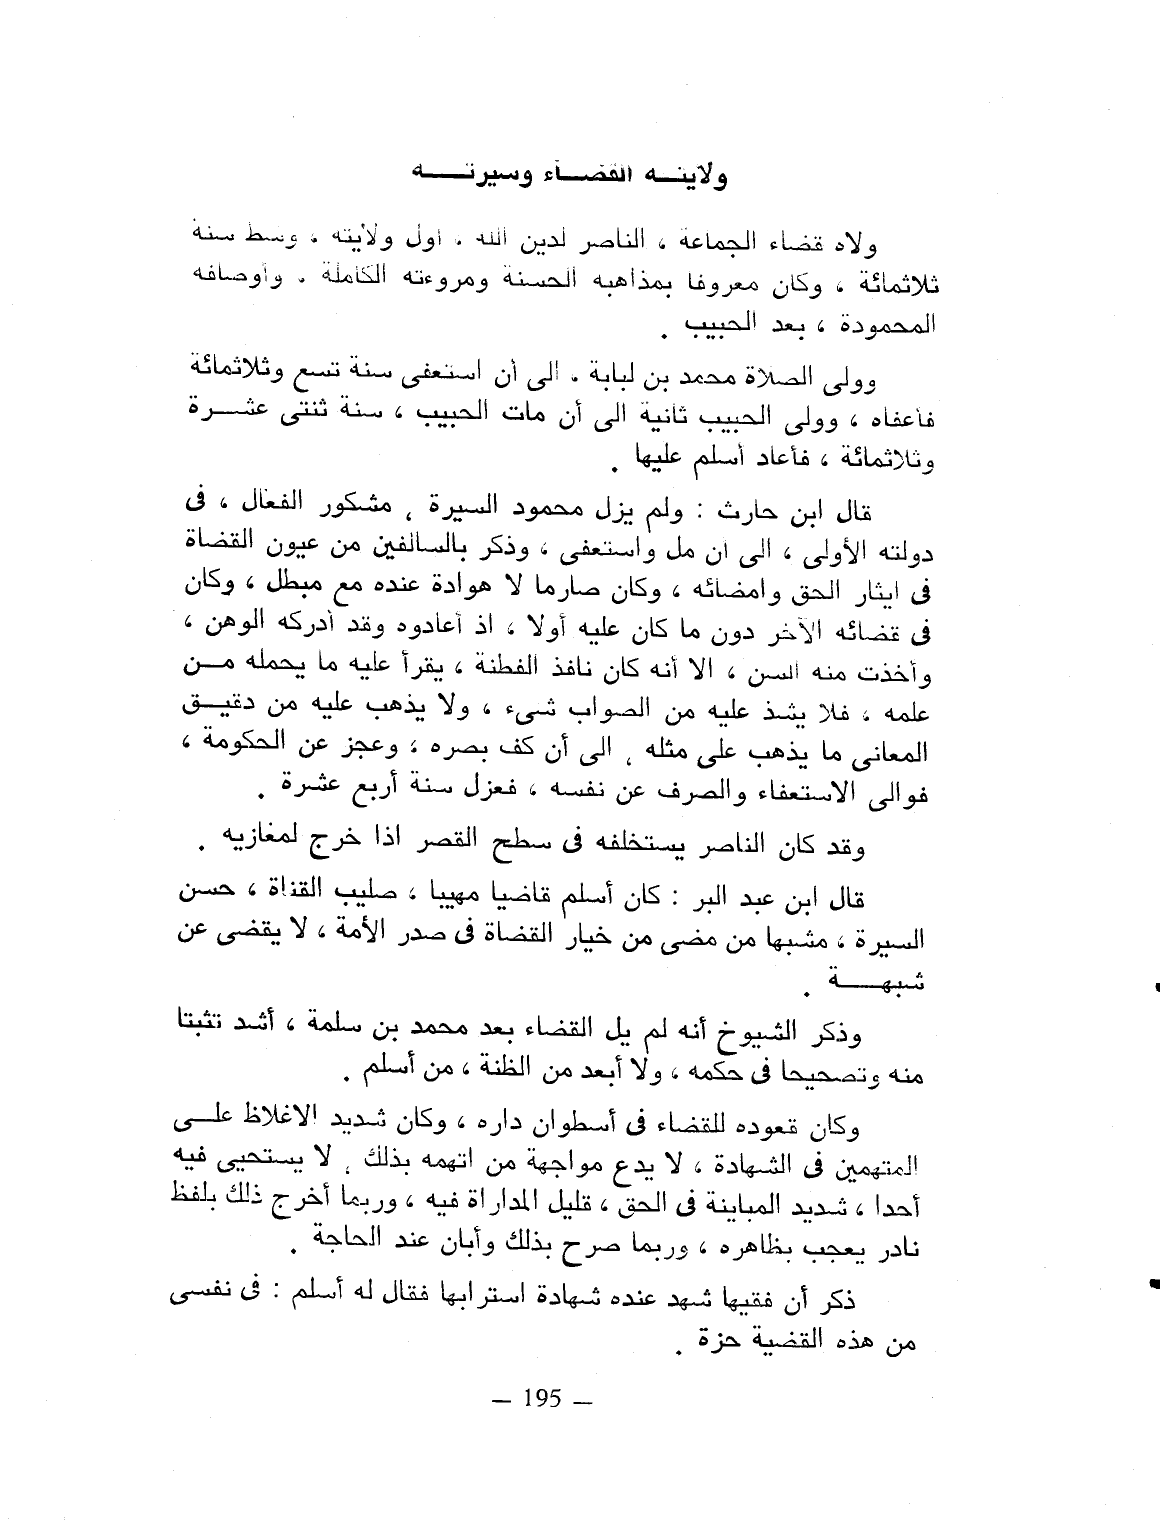 ولايته القضاء وسيرته
ولاه قضاء الجماعة ، الناصر لدين الله ، أول ولايته ، وسط سنة
ثلاثمائة ، وكان معروفا بمذاهبه الحسنة ومروءته الكاملة . وأوصافه
المحمودة ، بعد الحبيب .
وولى الصلاة محمد بن لبابة ، الى أن استعفى سنة تسع وثلاثمائة
فأعفاه ، وولى الحبيب ثانية الى أن مات الحبيب ، سنة ثنتى عشرة
وثلاثمائة ، فأعاد أسلم عليها .
قال ابن حارث : ولم يزل محمود السيرة ، مشكور الفعال ، فى
دولته الأولى ، الى ان مل واستعفى ، وذكر بالسالفين من عيون القضاة
فى ايثار الحق وامضائه ، وكان صارما لا هوادة عنده مع مبطل ، وكان
فى قضائه الآخر دون ما كان عليه أولا ، اذ أعادوه وقد أدركه الوهن ،
وأخذت منه السن ، الا أنه كان نافذ الفطنة ، يقرأ عليه ما يحمله من
علمه ، فلا يشذ عليه من الصواب شىء ، ولا يذهب عليه من دقيق
المعانى ما يذهب على مثله ، الى أن كف بصره ، وعجز عن الحكومة ،
فوالى الاستعفاء والصرف عن نفسه ، فعزل سنة أربع عشرة .
وقد كان الناصر يستخلفه فى سطح القصر اذا خرج لمغازيه .
قال ابن عبد البر : كان أسلم قاضيا مهيبا ، صليب القناة ، حسن
السيرة ، مشبها من مضى من خيار القضاة فى صدر الأمة ، لا يقضى عن
شبهة .
وذكر الشيوخ أنه لم يل القضاء بعد محمد بن سلمة ، أشد تثبتا
منه وتصحيحا فى حكمه ، ولا أبعد من الظنة ، من أسلم .
وكان قعوده للقضاء فى أسطوان داره ، وكان شديد الاغلاظ على
المتهمين فى الشهادة ، لا يدع مواجهة من اتهمه بذلك ، لا يستحيى فيه
أحدا ، شديد المباينة فى الحق ، قليل المداراة فيه ، وربما أخرج ذلك بلفظ
نادر يعجب بظاهره ، وربما صرح بذلك وأبان عند الحاجة .
ذكر أن فقيها شهد عنده شهادة استرابها فقال له أسلم : فى نفسى
من هذه القضية حزة .
— 195 —